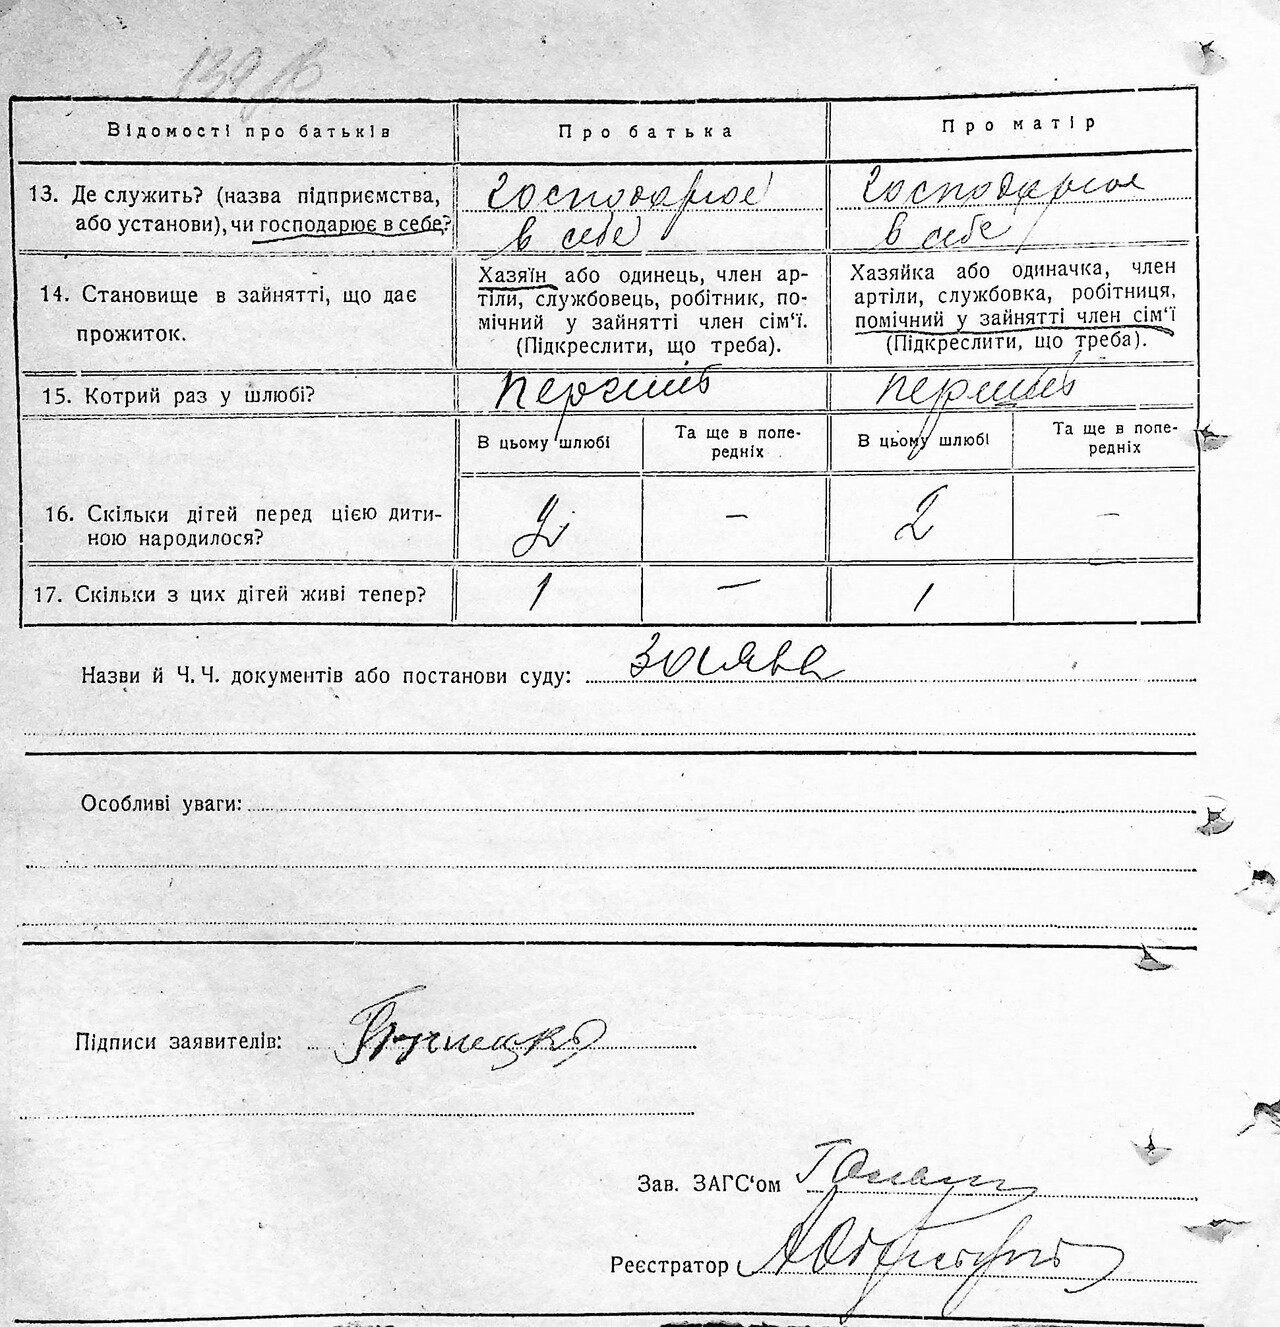 Відомості про батьків
Про батька
Про матір
13. Де служить? (назва підприємства,
або установи), чи господарює в себе?
господарює
в себе
господарює
в себе
14. Становище в зайнятті, що дає
прожиток.
Хазяїн або одинець, член ар-
тіли, службовець, робітник, по-
мічний у зайнятті член сім‘ї.
(Підкреслити, що треба).
Хазяйка або одиначка, член
артіли, службовка, робітниця,
помічний у зайнятті член сім‘ї
(Підкреслити, що треба).
15. Котрий раз у шлюбі?
перший
перший
В цьому шлюбі
Та ще в попе-
редніх
В цьому шлюбі
Та ще в попе-
редніх
16. Скільки дітей перед цією дити-
ною народилося?
2
—
2
—
17. Скільки з цих дітей живі тепер?
1
—
1
Назви й Ч. Ч. документів або постанови суду: заява
Особливі уваги:
Підписи заявителів:
Зав. ЗАГС‘ом
Реєстратор